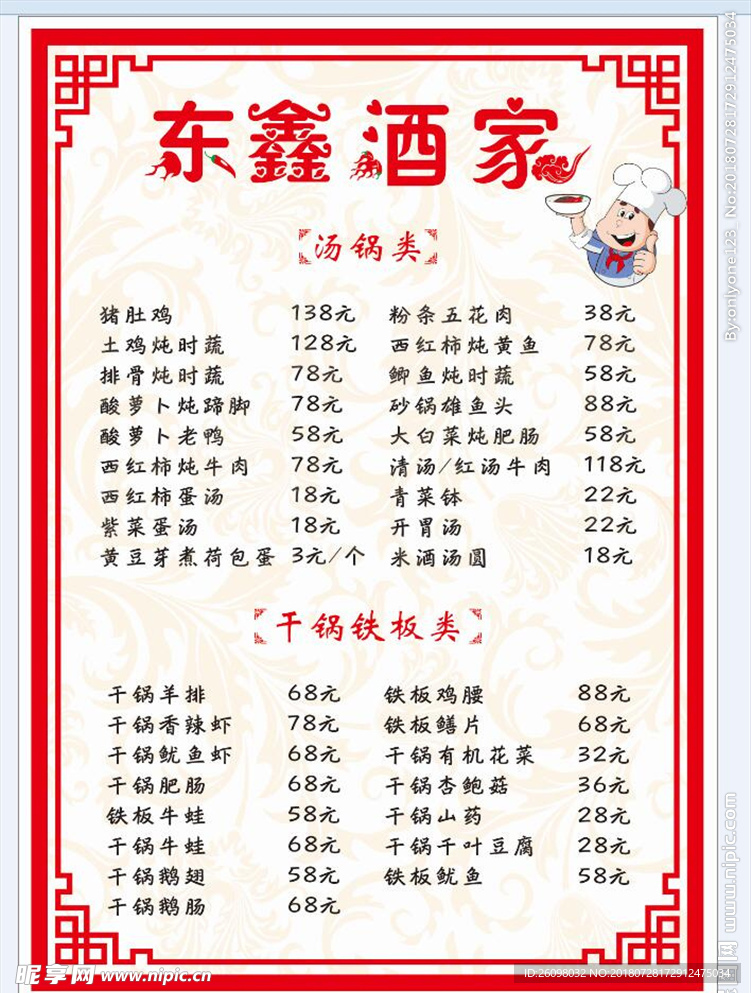 东鑫酒家
汤锅类
猪肚鸡 138元 粉条五花肉 38元
土鸡炖时蔬 128元 西红柿炖黄鱼 78元
排骨炖时蔬 78元 鲫鱼炖时蔬 58元
酸萝卜炖蹄脚 78元 砂锅雄鱼头 88元
酸萝卜老鸭 58元 大白菜炖肥肠 58元
西红柿炖牛肉 78元 清汤/红汤牛肉 118元
西红柿蛋汤 18元 青菜钵 22元
紫菜蛋汤 18元 开胃汤 22元
黄豆芽煮荷包蛋 3元/个 米酒汤圆 18元
干锅铁板类
干锅羊排 68元 铁板鸡腰 88元
干锅香辣虾 78元 铁板鳝片 68元
干锅鱿鱼虾 68元 干锅有机花菜 32元
干锅肥肠 68元 干锅杏鲍菇 36元
铁板牛蛙 58元 干锅山药 28元
干锅牛蛙 68元 干锅千叶豆腐 28元
干锅鹅翅 58元 铁板鱿鱼 58元
干锅鹅肠 68元
昵享网 www.nipic.cn
ID:26098032 NO:20180728172912475034
By:onlyone123 No:20180728172912475034
昵图网 www.nipic.com